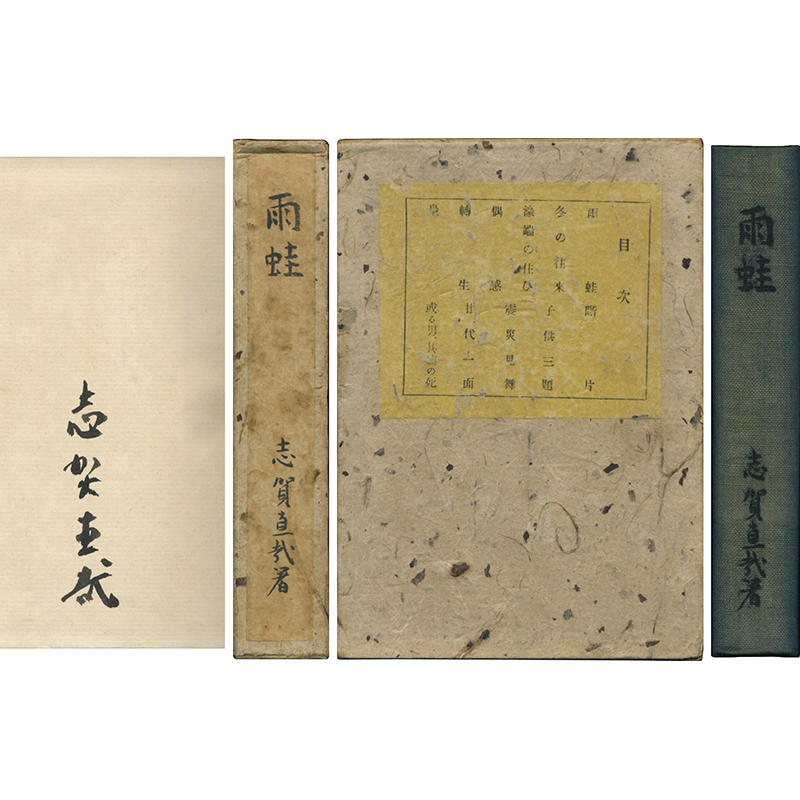 志賀直哉
雨蛙
志賀直哉著
目次
雨蛙 斷片
冬の往来 子供三題
濠端の住ひ 震災見舞
偶感 廿代一面
轉生 或る男、其姉の死
雨蛙
志賀直哉著